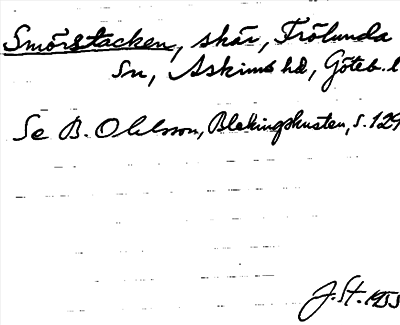 Smörstacken, skär, Frölunda
sn, Askims hd, Göteb. l
Se B. Ohlsson, Blekingskusten, s. 129
J. St. 1955